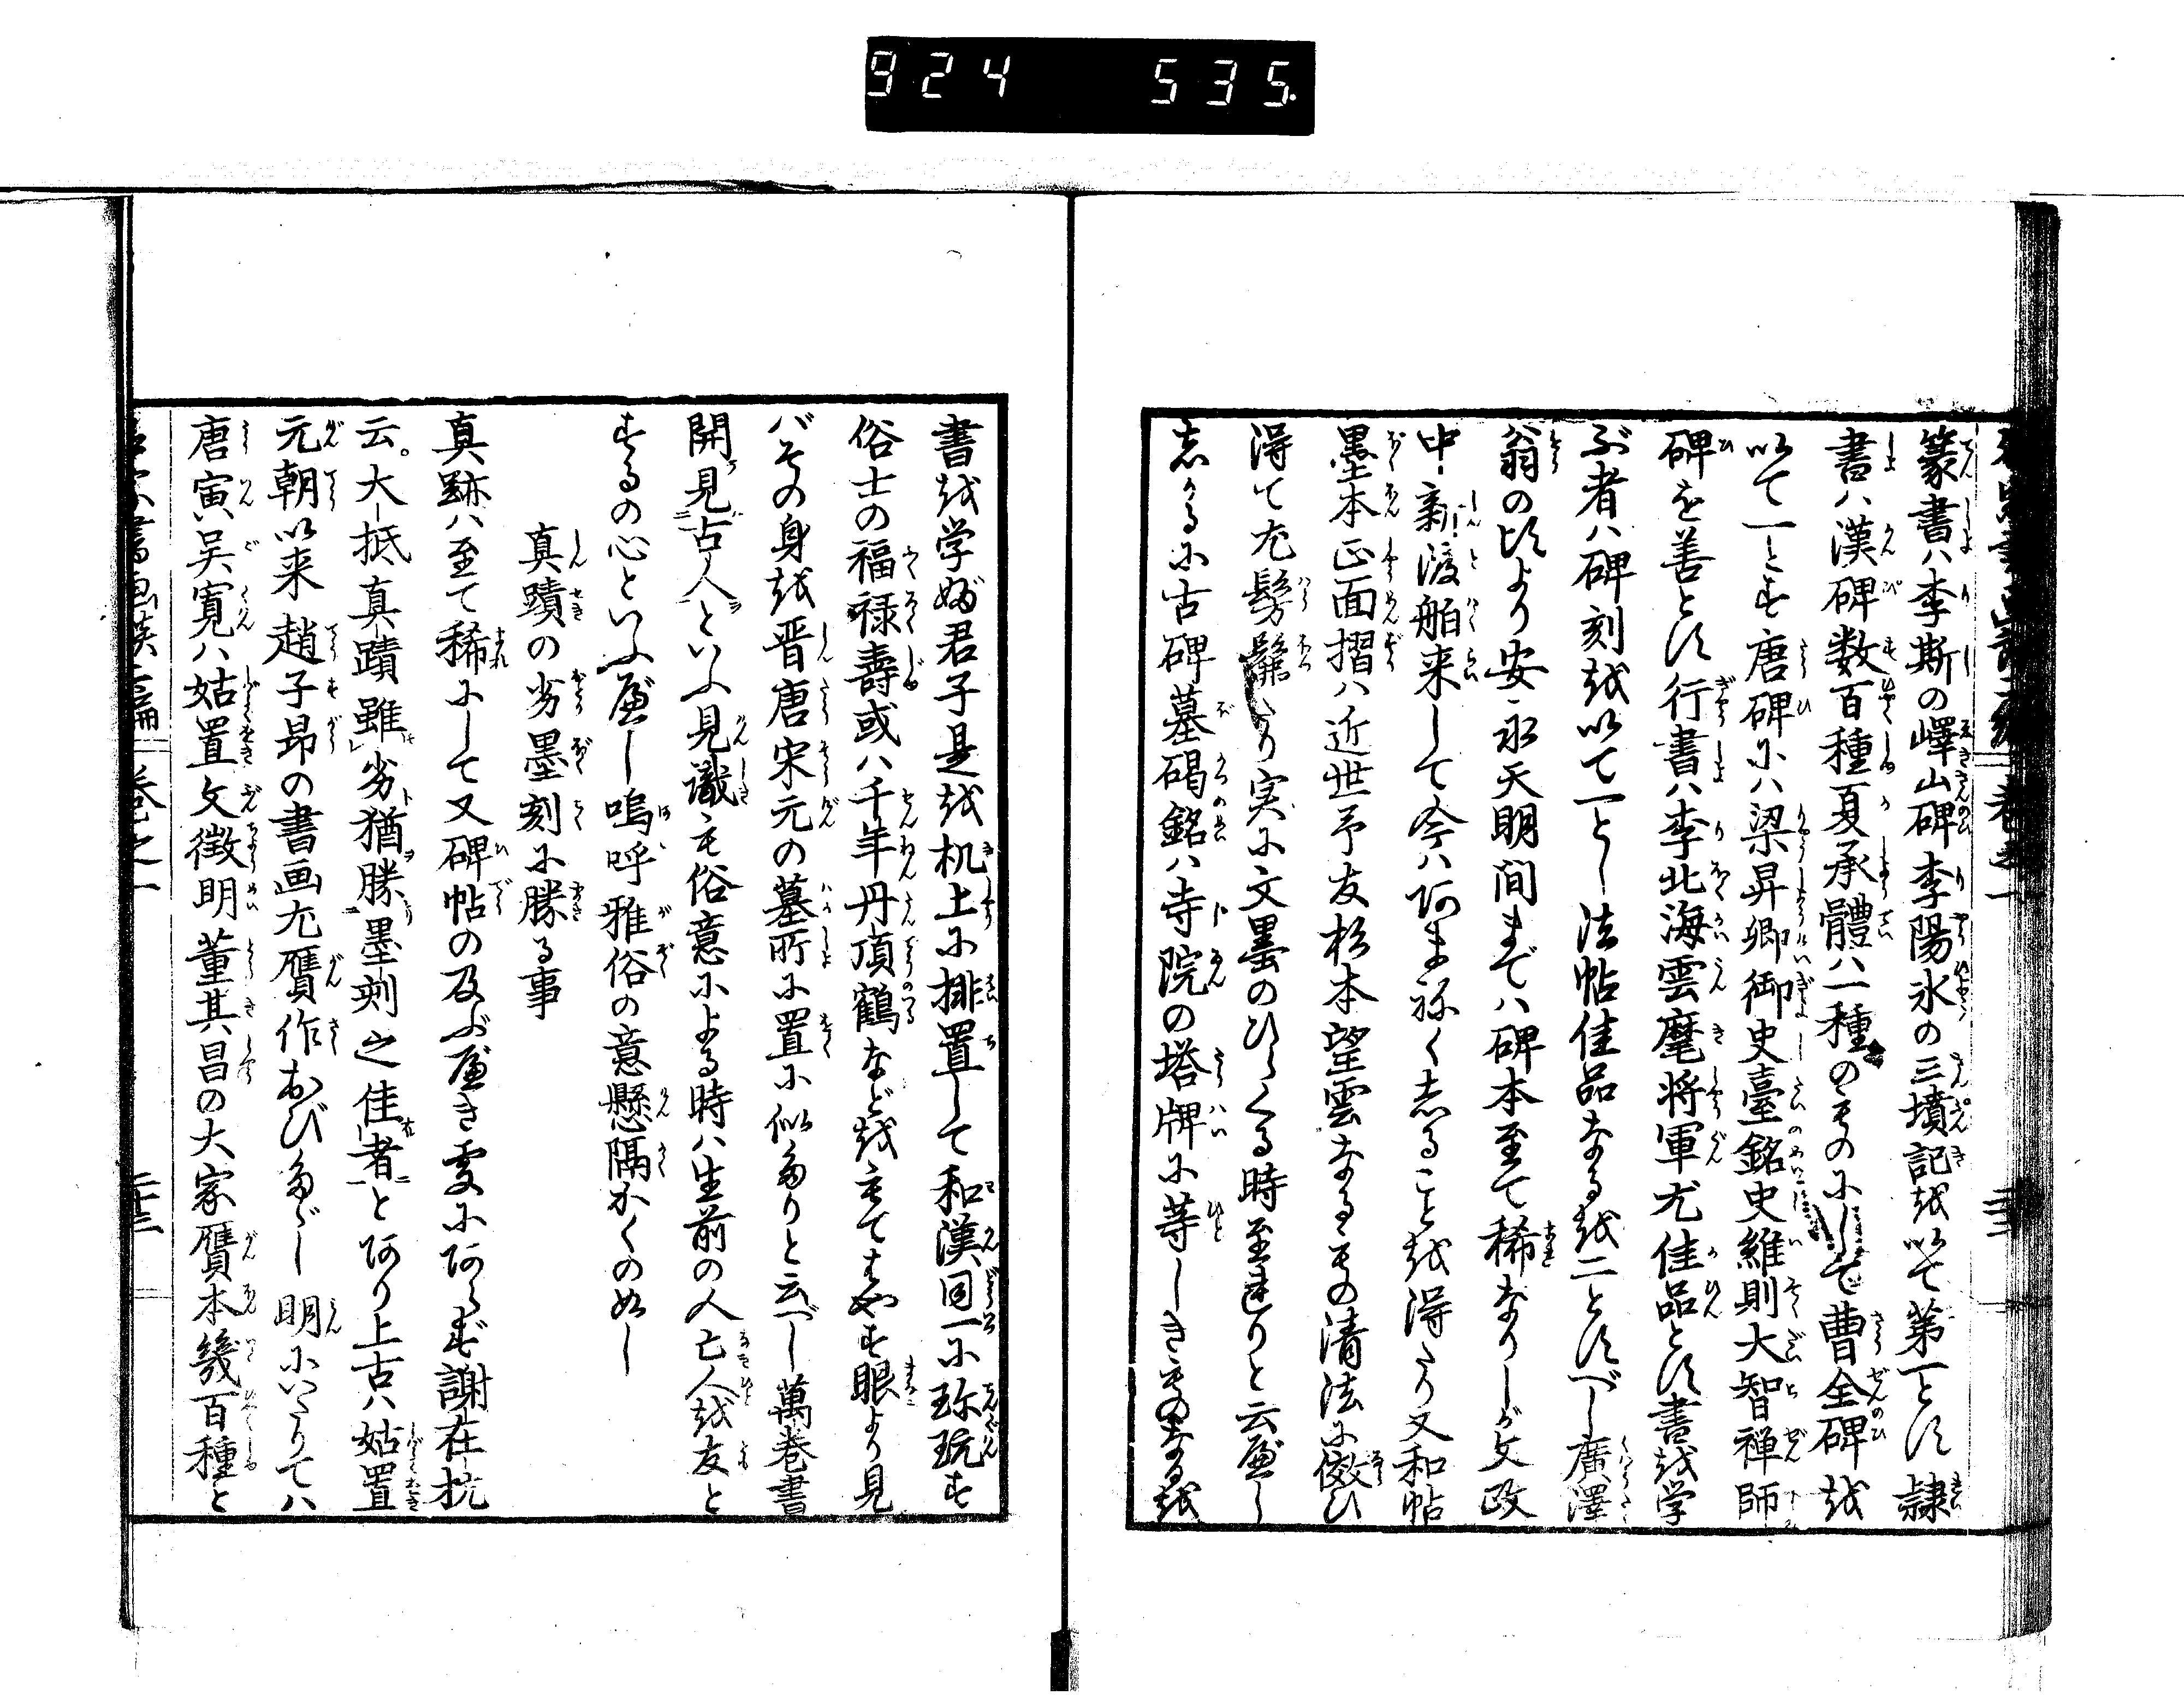 924 535.
篆書ハ李斯の嶧山碑李陽氷の三墳記を以て第一とす隷
書ハ漢碑数百種夏承體ハ一種のものにして曹全碑を
以て一とす唐碑にハ梁昇卿御史臺銘史維則大智禅師
碑を善とす行書ハ李北海雲麾将軍尤佳品とす書を学
ぶ者ハ碑刻を以て一とし法帖佳品なるを二とすべし廣澤
翁の比より安永天明間までハ碑本至て稀なりしが文政
中新渡舶来して今ハあまねくしることを得たり又和帖
墨本正面摺ハ近世予友杉本望雲なるもの清法に倣ひ
得て尤髣髴たり実に文墨のひらくる時至れりと云べし
しかるに古碑墓碣銘ハ寺院の塔牌に等しきものなるを
書を学ぶ君子是を机上に排置して和漢同一に珎玩す
俗士の福禄壽或ハ千年丹頂鶴などをもてはやす眼より見
バその身を晋唐宋元の墓所に置に似たりと云べし萬巻書
開見古人といふ見識も俗意による時ハ生前の人亡人を友と
するの心といふべし嗚呼雅俗の意懸隔かくのめし
真蹟の劣墨刻に勝る事
真跡ハ至て稀にして又碑帖の及ぶべき支にあらず謝在杭
云大抵真蹟雖劣猶勝墨刻之佳者とあり上古ハ姑置
元朝以来趙子昂の書画尤贋作おびたゞし明にいたりてハ
唐寅呉寛ハ姑置文徴明董其昌の大家贋本幾百種と
巻之一
二十三